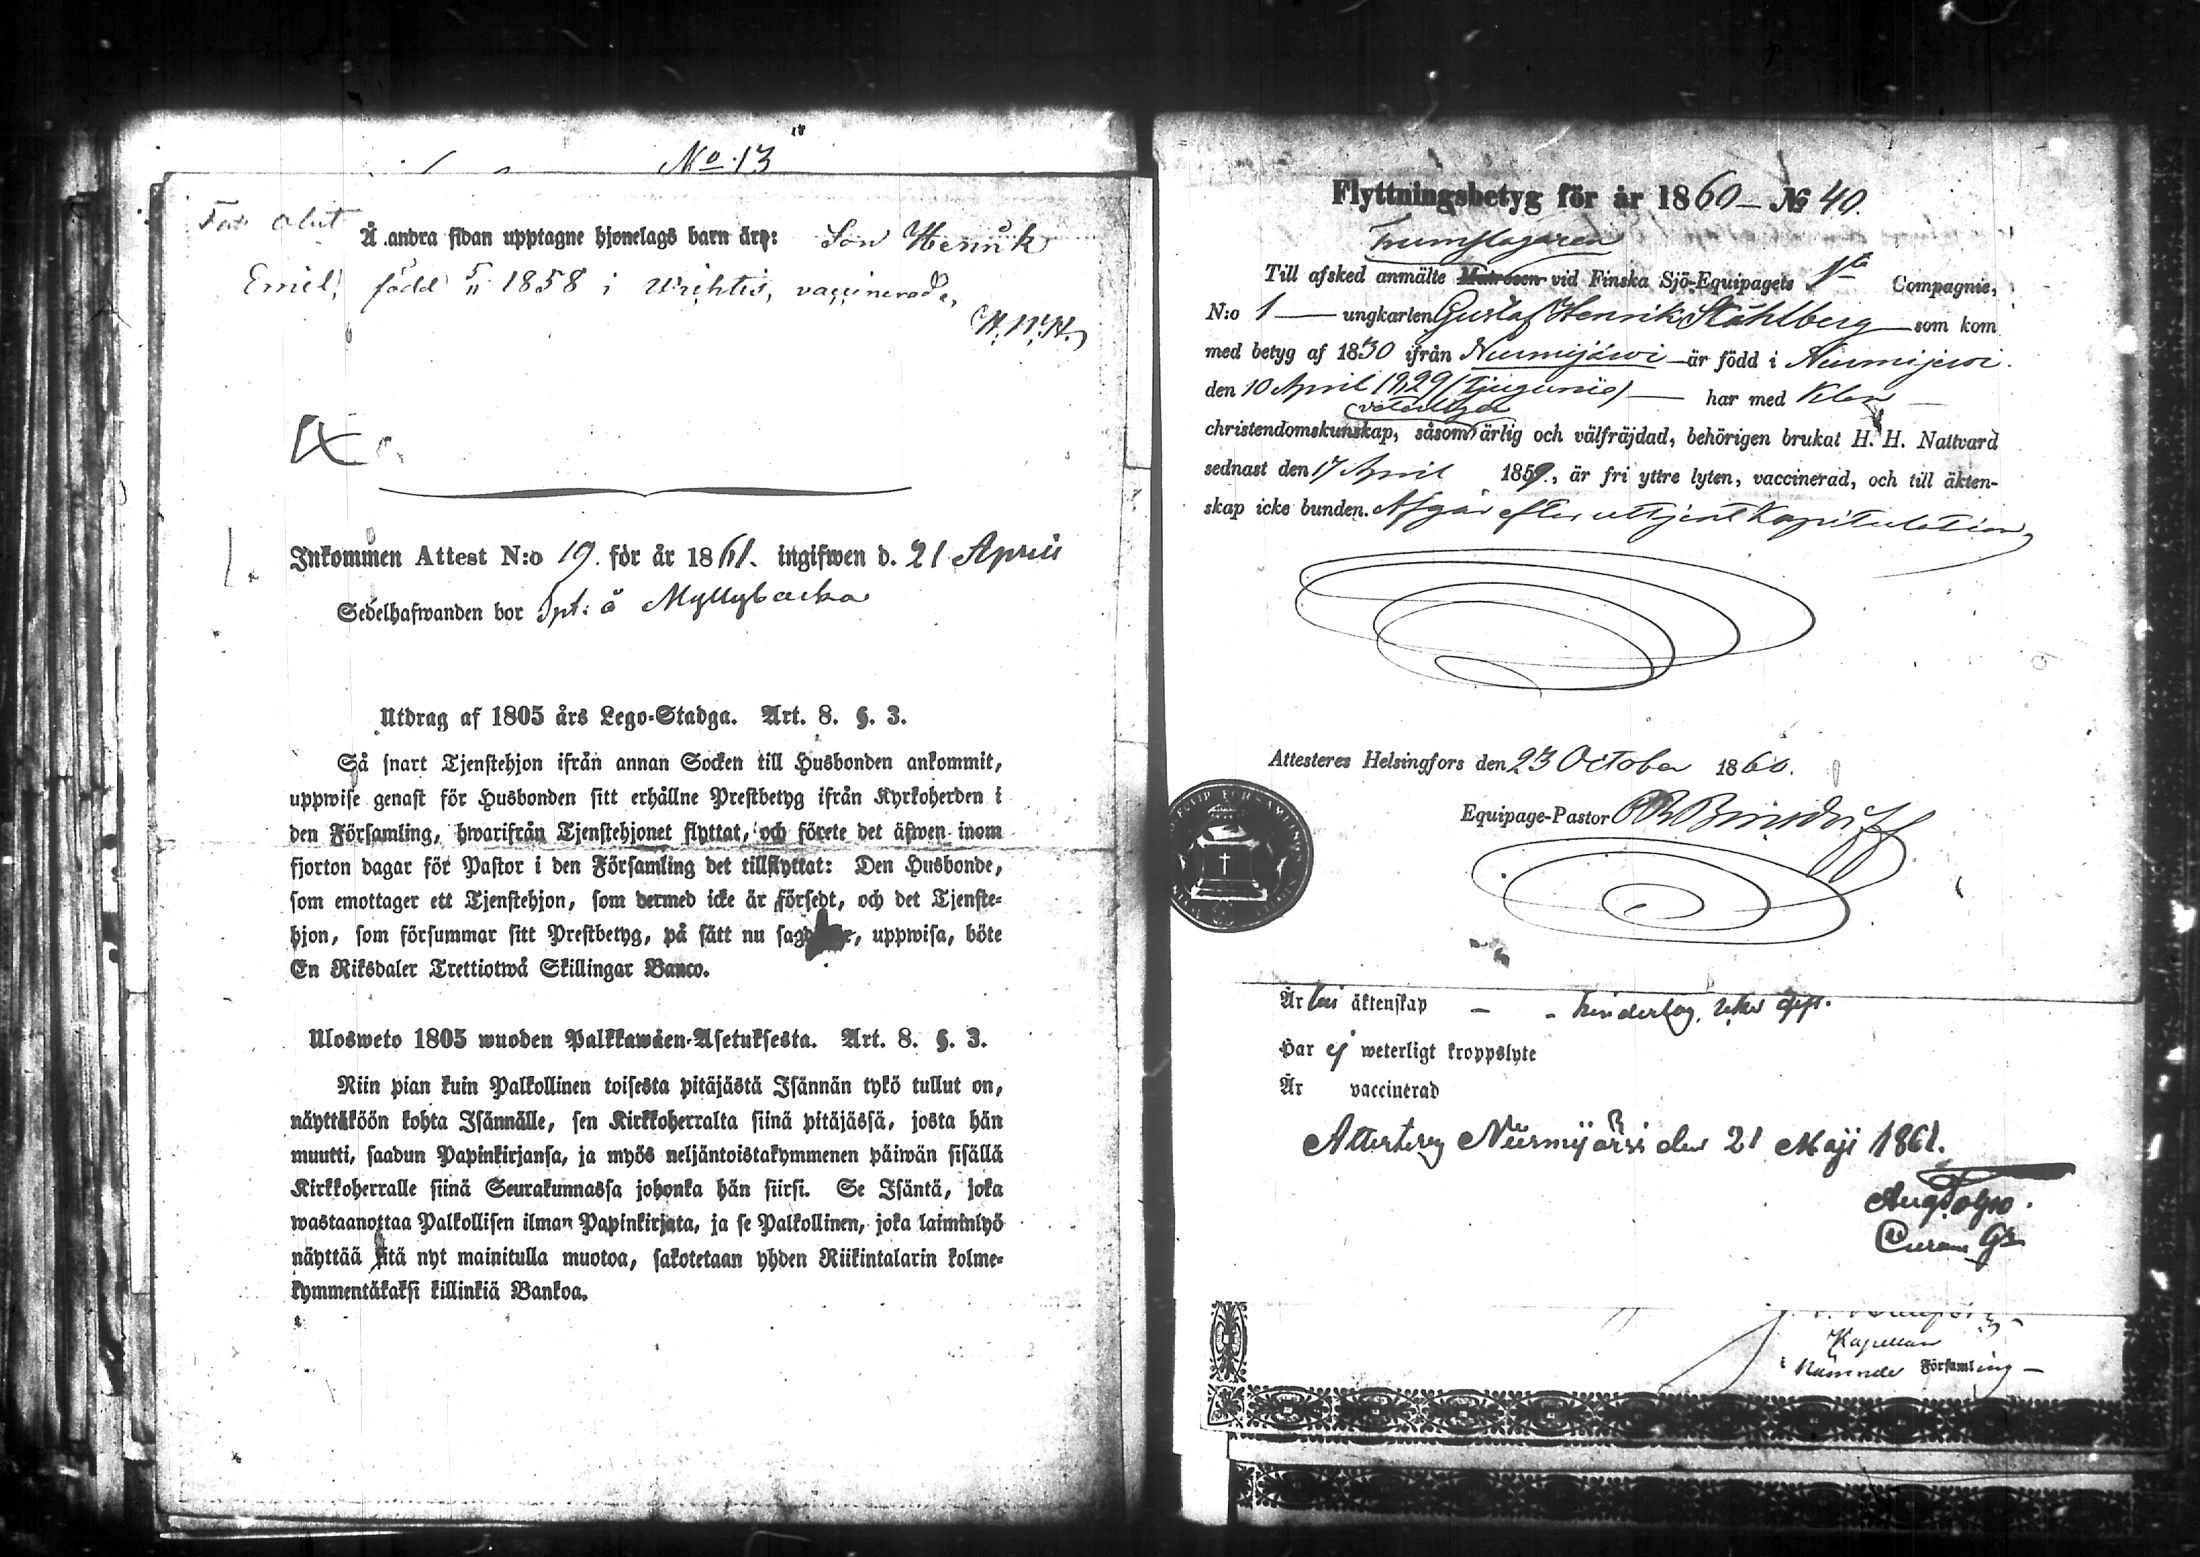 No 13
Å andra sidan upptagne hjonelags barn äro: Son Henrik
Emil, född 5/11 1858 i Wichtis, vaccinerade,
Inkommen Attest N:o 19. för år 1861. ingifwen d. 21 April
Sedelhafwanden bor Spt: å Myllybacka
Utdrag af 1805 års Lego-Stadga. Art. 8. §. 3.
Så snart Tjenstehjon ifrån annan Socken till Husbonden ankommit,
uppwise genast för Husbonden sitt erhållne Prestbetyg ifrån Kyrkoherden i
den Församling, hwarifrån Tjenstehjonet flyttat, och förete det äfwen inom
fjorton dagar för Pastor i den Församling det tillflyttat: Den Husbonde,
som emottager ett Tjenstehjon, som dermed icke är försedt, och det Tjenste-
hjon, som försummar sitt Prestbetyg, på sätt nu , uppwisa, böte
En Riksdaler Trettiotwå Skillingar Banco.
Ulosweto 1805 wuoden Palkkawäen-Asetuksesta. Art. 8. §. 3.
Niin pian kuin Palkollinen toisesta pitäjästä Isännän tykö tullut on,
näyttäköön kohta Isännälle, sen Kirkkoherralta siinä pitäjässä, josta hän
muutti, saadun Papinkirjansa, ja myös neljäntoistakymmenen päiwän sisällä
Kirkkoherralle siinä Seurakunnassa johonka hän siirsi. Se Isäntä, joka
wastaanottaa Palkollisen ilman Papinkirjata, ja se Palkollinen, joka laiminlyö
näyttää sitä nyt mainitulla muotoa, sakotetaan yhden Riikintalarin kolme-
kymmentäkaksi killinkiä Bankoa.
Flyttningsbetyg för år 1860 – № 40.
Trumslagaren
Till afsked anmälte Matrosen vid Finska Sjö-Equipagets 1sta Compagnie,
N:o 1 — ungkarlen Gustaf Henrik Ståhlberg — som kom
med betyg af 1850 ifrån Nurmijärvi — är född i Nurmijervi.
den 10 April 1829 (Tjugunie) — har med klen —
veterligen
christendomskunskap, såsom ärlig och välfräjdad, behörigen brukat H. H. Nattvard
sednast den 17 April 1859., är fri yttre lyten, vaccinerad, och till äkten-
skap icke bunden. Afgår efter uttjent Kapitulation,
Attesteres Helsingfors den 23 October 1860.
Equipage-Pastor
Är äktenskap
Har ej weterligt kroppslyte
Är vaccinerad
Attesteras Nurmijärvi den 21 Maji 1861.
Kapellan
i Nämnde Församling —